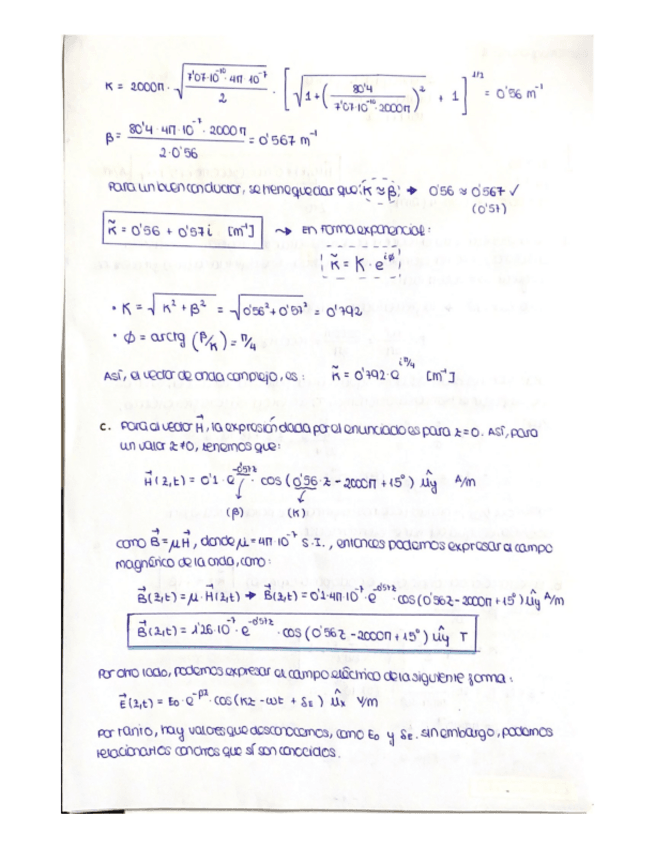 K = 2000π · √(7'07·10⁻¹⁰ · 4π·10⁻⁷ / 2) · [ √(1 + (80'4 / 7'07·10⁻¹⁰·2000π)²) + 1 ]^1/2 = 0'56 m⁻¹
β = 80'4 · 4π·10⁻⁷ · 2000π / 2·0'56 = 0'567 m⁻¹
Para un buen conductor, se tiene que dar que: K ≈ β → 0'56 ≈ 0'567 ✓
(0'57)
K̃ = 0'56 + 0'57i [m⁻¹] ⇝ en forma exponencial:
K̃ = K · e^iø
• K = √(K² + β²) = √(0'56² + 0'57²) = 0'792
• ø = arctg (β/K) = π/4
Así, el vector de onda complejo, es: K̃ = 0'792 · e^iπ/4 [m⁻¹]
c. Para el vector H⃗, la expresión dada por el enunciado es para z=0. Así, para
un valor z≠0, tenemos que:
H⃗(z,t) = 0'1 · e^-0'57z · cos(0'56·z - 2000π + 15°) ûy A/m
(β) (K)
como B⃗ = μH⃗, donde μ = 4π·10⁻⁷ S.I., entonces podemos expresar el campo
magnético de la onda, como:
B⃗(z,t) = μ · H⃗(z,t) → B⃗(z,t) = 0'1·4π·10⁻⁷ · e^-0'57z · cos(0'56z - 2000π + 15°) ûy A/m
B⃗(z,t) = 1'26·10⁻⁷ · e^-0'57z · cos(0'56z - 2000π + 15°) ûy T
Por otro lado, podemos expresar el campo eléctrico de la siguiente forma:
E⃗(z,t) = E₀ · e^-βz · cos(Kz - ωt + δE) ûx V/m
Por tanto, hay valores que desconocemos, como E₀ y δE. sin embargo, podemos
relacionarlos con otros que sí son conocidos.